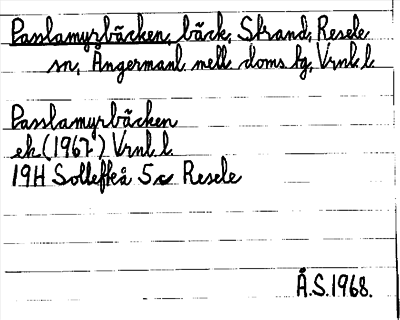 Passlamyrbäcken, bäck, Strand, Resele
sn, Ångermanl. mell. doms. tg, Vrnl. l.
Passlamyrbäcken
ek (1967) Vrnl. l.
19H Sollefteå 5c Resele
Å.S.1968.